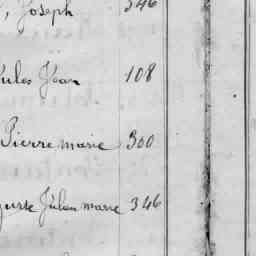 , Joseph 346
Jules Jean 108
Pierre marie 300
Julien marie 346